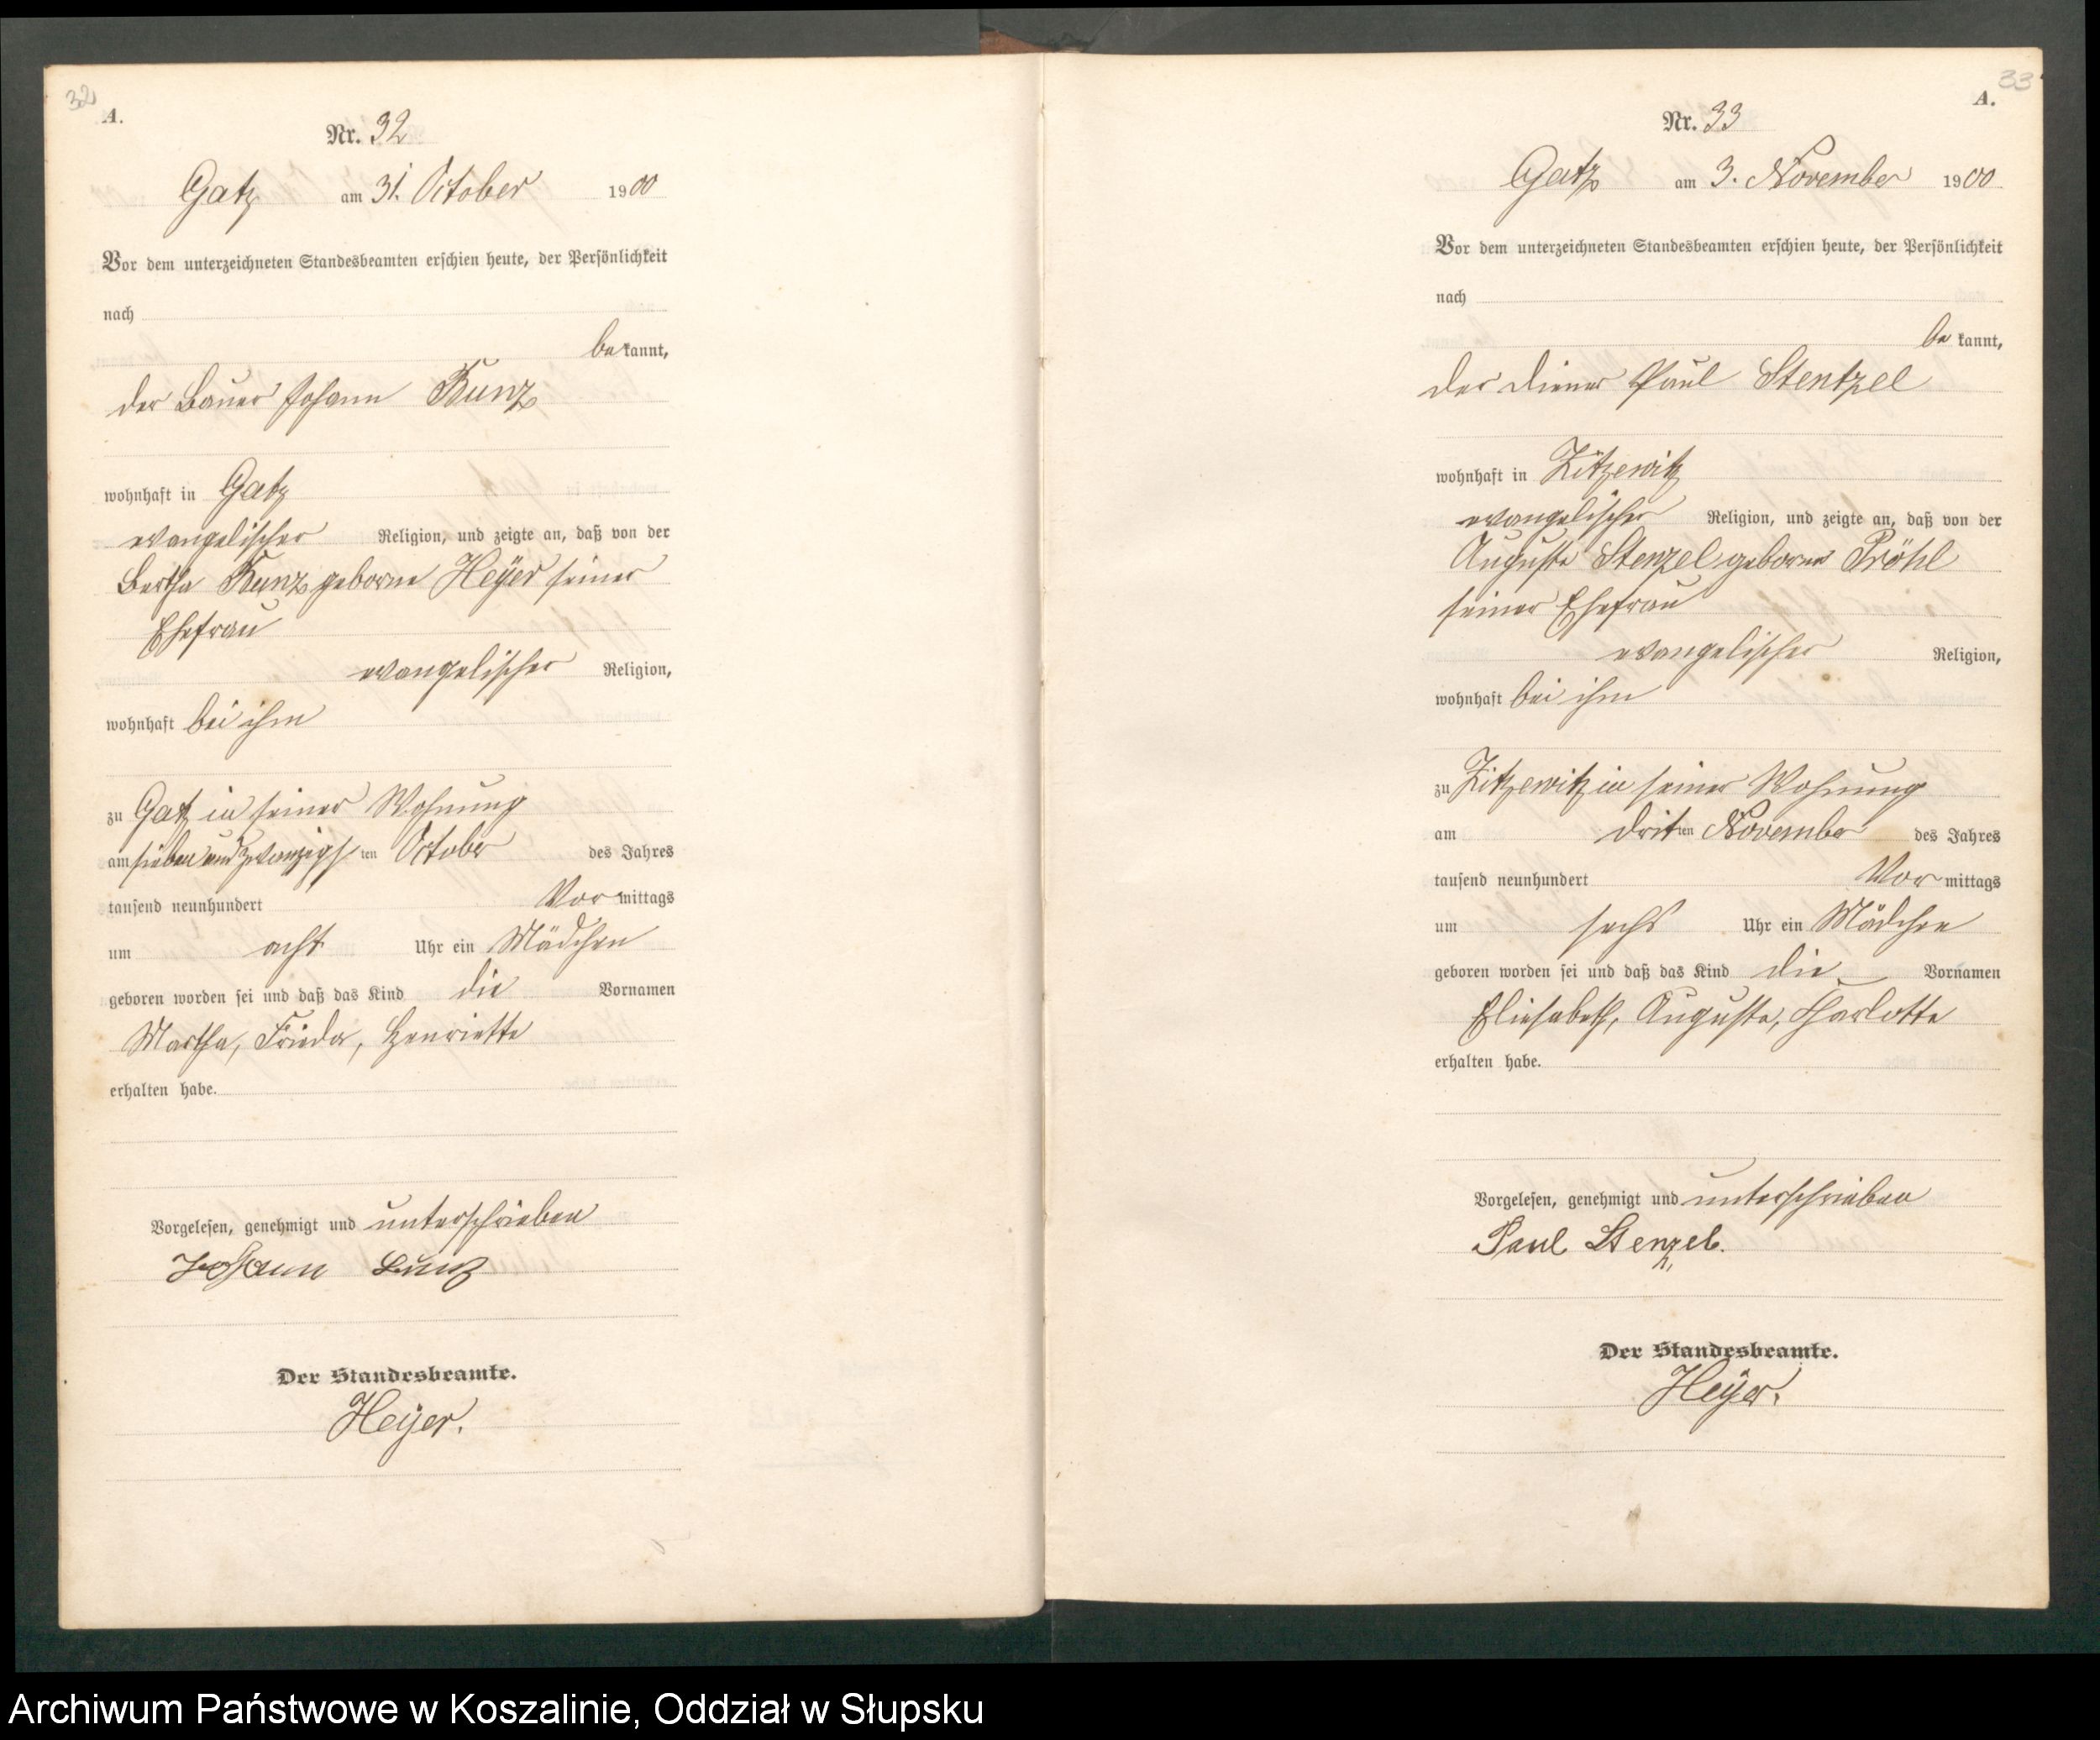 32
A.
Nr. 32
Gatz am 31. October 1900
Vor dem unterzeichneten Standesbeamten erschien heute, der Persönlichkeit
nach
bekannt,
der Bauer Johann Kunz
wohnhaft in Gatz
evangelischer Religion, und zeigte an, daß von der
Bertha Kunz geborne Heyer seiner
Ehefrau
evangelischer Religion,
wohnhaft bei ihm
zu Gatz in seiner Wohnung
am sieben und zwanzigsten October des Jahres
tausend neunhundert Vormittags
um acht Uhr ein Mädchen
geboren worden sei und daß das Kind die Vornamen
Martha, Frieda, Henriette
erhalten habe.
Vorgelesen, genehmigt und unterschrieben
Johann Kunz
Der Standesbeamte.
Heyer.
33
A.
Nr. 33
Gatz am 3. November 1900
Vor dem unterzeichneten Standesbeamten erschien heute, der Persönlichkeit
nach
bekannt,
der Diener Paul Stentzel
wohnhaft in Zitzewitz
evangelischer Religion, und zeigte an, daß von der
Auguste Stenzel geborne Pröhl
seiner Ehefrau
evangelischer Religion,
wohnhaft bei ihm
zu Zitzewitz in seiner Wohnung
am dritten November des Jahres
tausend neunhundert Vormittags
um sechs Uhr ein Mädchen
geboren worden sei und daß das Kind die Vornamen
Eliesabeth, Auguste, Charlotte
erhalten habe.
Vorgelesen, genehmigt und unterschrieben
Paul Stenzel.
Der Standesbeamte.
Heyer.
Archiwum Państwowe w Koszalinie, Oddział w Słupsku